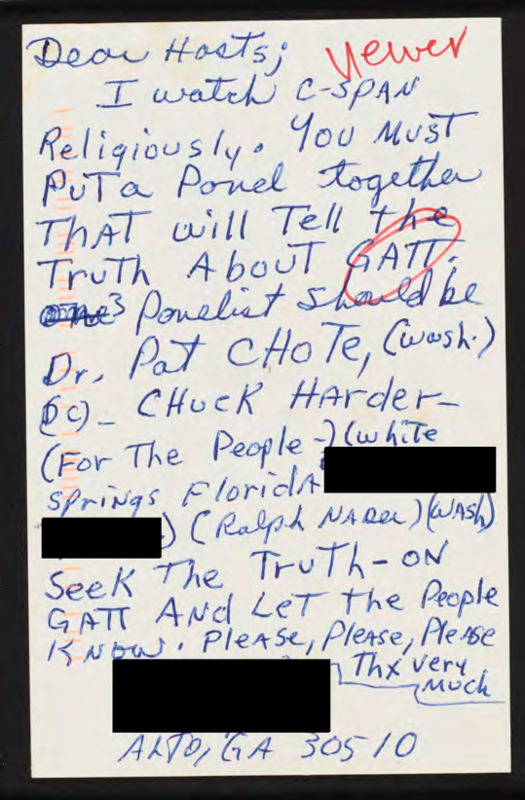 Dear Hosts; Newer
I watch C-SPAN
Religiously. You Must
Put a Panel together
THAT will Tell the
Truth About GATT.
3 Panelist should be
Dr. Pat CHoTe, (Wash.)
DC) - CHUCK HArder-
(For The People-) (White
Springs FloridA
) (Ralph NADER) (WAsh)
Seek The Truth-ON
GATT And Let the People
KNow. Please, Please, Please
Thx very
Much
ALTO, GA 30510